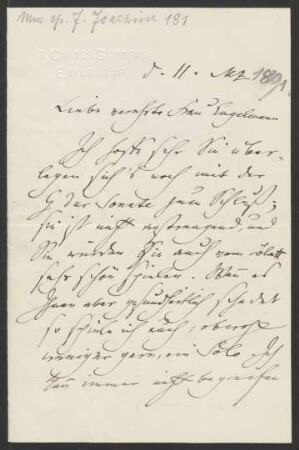 Mus. ep. J. Joachim 181
d. 11. Mz 1891.
Liebe verehrte Frau Engelmann
Ich hoffe sehr Sie über-
legen sich's noch mit der
G dur Sonate zum Schluß;
sie ist nicht anstrengend, und
Sie würden sie auch vom Blatt
sehr schön spielen. Wenn es
Ihnen aber gesundheitlich schadet
so spiele ich auch, obwohl
weniger gern, ein Solo. Ich
kann immer nicht begreifen